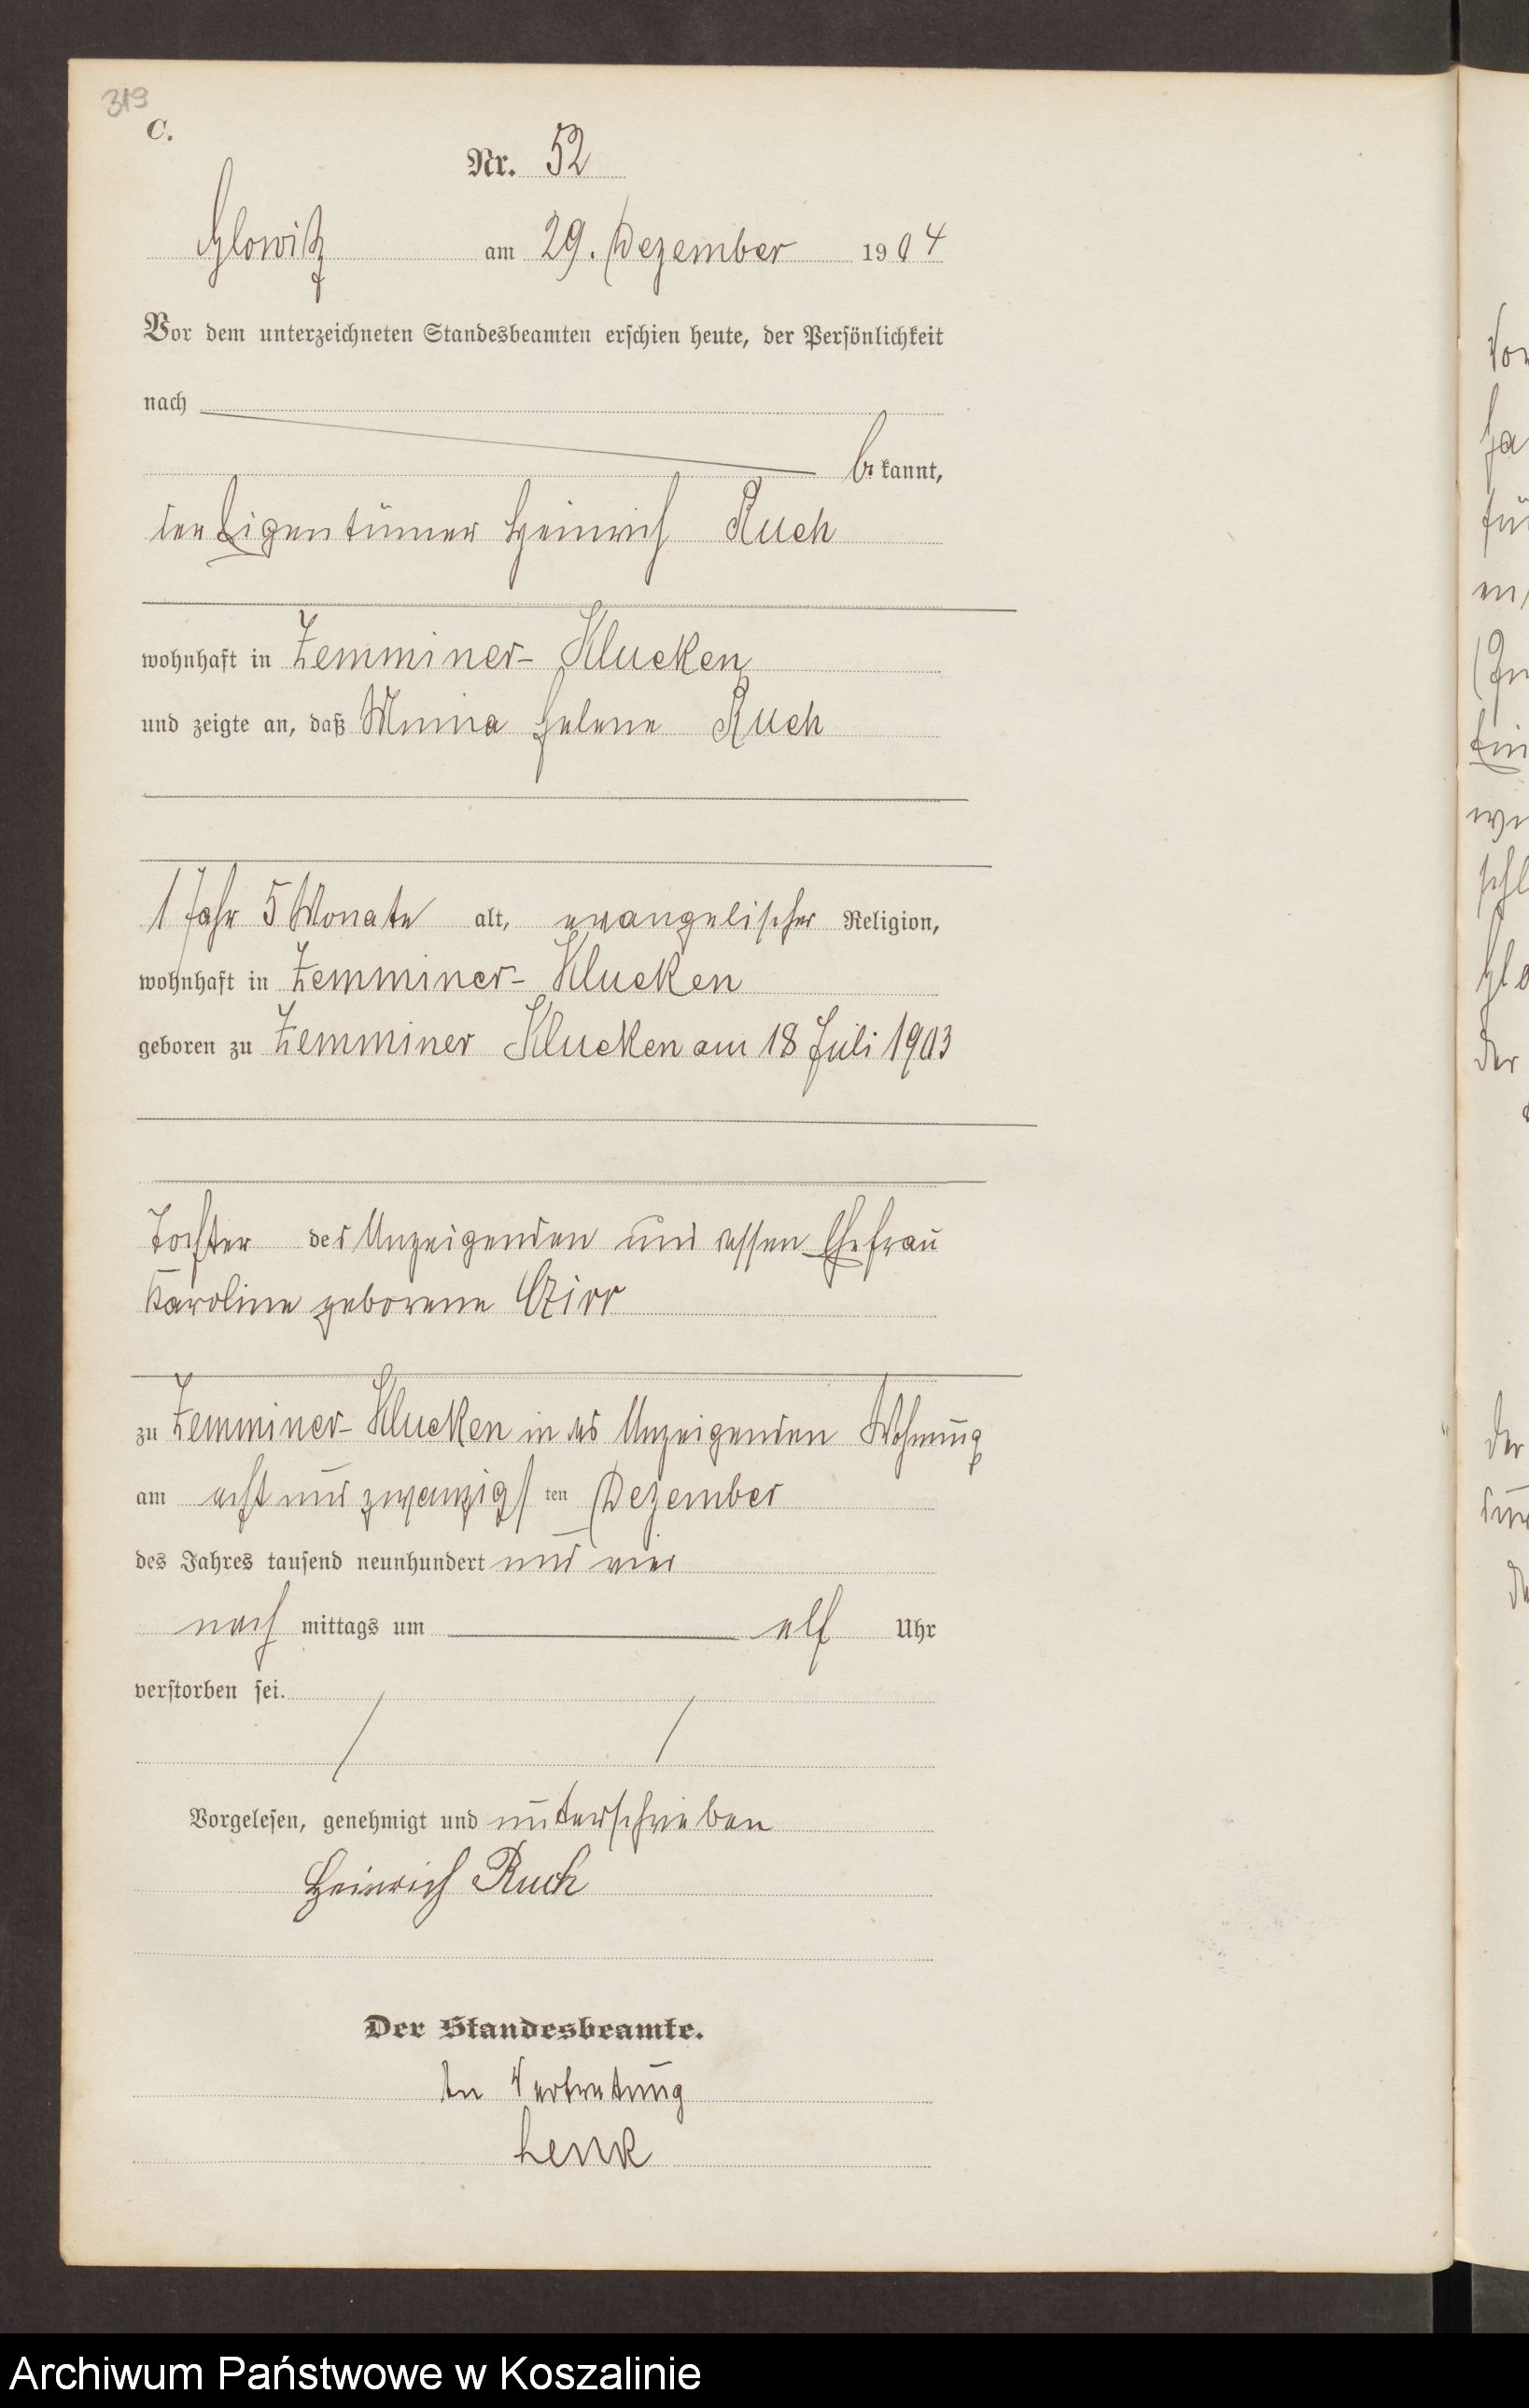 319
C.
Nr. 52
Glowitz am 29. Dezember 1904
Vor dem unterzeichneten Standesbeamten erschien heute, der Persönlichkeit
nach
bekannt,
der Eigentümer Heinrich Ruch
wohnhaft in Zemminer- Klucken
und zeigte an, daß Minna Helene Ruch
1 Jahr 5 Monate alt, evangelischer Religion,
wohnhaft in Zemminer- Klucken
geboren zu Zemminer Klucken am 18 Juli 1903
Tochter des Anzeigenden und dessen Ehefrau
Karoline geborene Czirr
zu Zemminer- Klucken in des Anzeigenden Wohnung
am acht und zwanzigsten Dezember
des Jahres tausend neunhundert und vier
nach mittags um elf Uhr
verstorben sei.
Vorgelesen, genehmigt und unterschrieben
Heinrich Ruch
Der Standesbeamte.
In Vertretung
Lenk
Archiwum Państwowe w Koszalinie